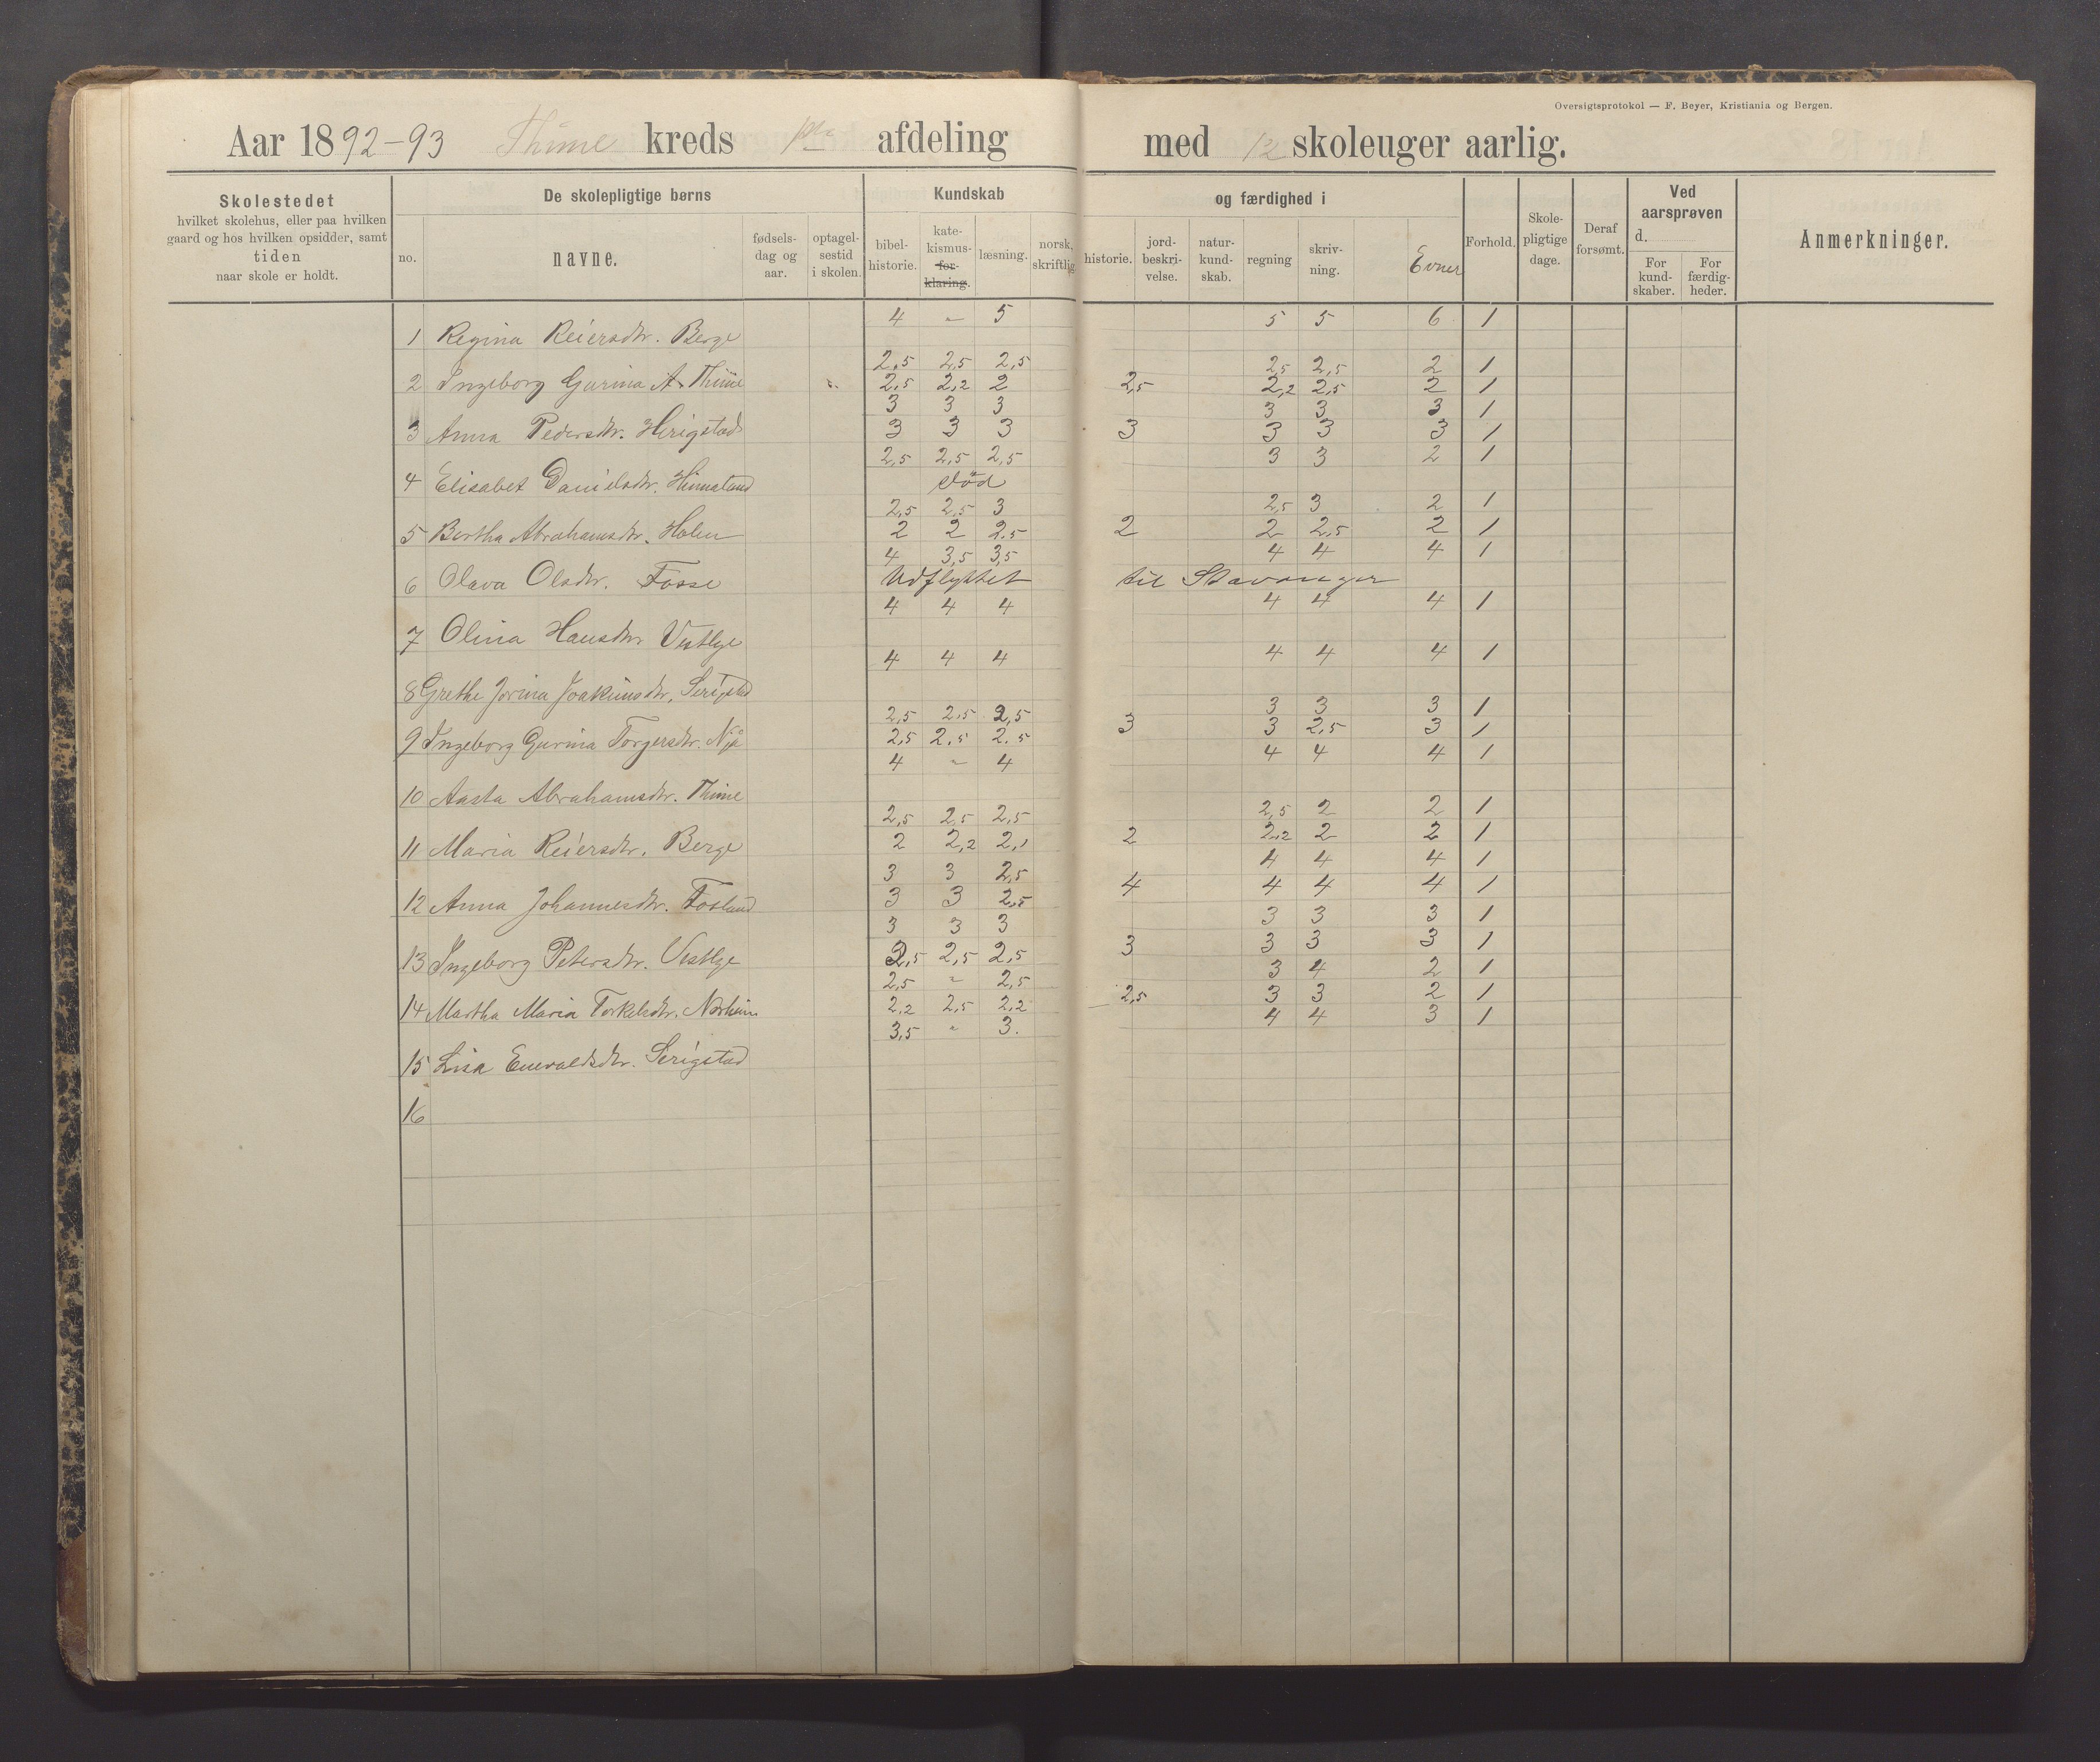 Oversigtsprotokol — F. Beyer, Kristiania og Bergen.
Aar 1892-93 Thime kreds 1ste afdeling med 12 skoleuger aarlig.
Skolestedet
hvilket skolehus, eller paa hvilken
gaard og hos hvilken opsidder, samt
tiden
naar skole er holdt.
De skolepligtige børns
no.
navne.
fødsels-
dag og
aar.
optagel-
sestid
i skolen.
Kundskab
bibel-
historie.
kate-
kismus-
for-
klaring.
læsning.
norsk,
skriftlig
og færdighed i
historie.
jord-
beskri-
velse.
natur-
kund-
skab.
regning
skriv-
ning.
Evner
Forhold.
Skole-
pligtige
dage.
Deraf
forsømt.
Ved
aarsprøven
d.
For
kund-
skaber.
For
færdig-
heder.
Anmerkninger.
4 - 5 5 5 6 1
1 Regina Reiersdtr. Berge
2,5 2,5 2,5 2,5 2,5 2 1
2 Ingeborg Gurina A. Thime
2,5 2,2 2 2,5 2,2 2,5 2 1
3 3 3 3 3 3 1
3 Anna Pedersdtr. Herigstad
3 3 3 3 3 3 3 1
2,5 2,5 2,5 3 3 2 1
4 Elisabet Danielsdtr. Hinnaland
død
2,5 2,5 3 2,5 3 2 1
5 Bertha Abrahamsdtr. Holen
2 2 2,5 2 2 2,5 2 1
4 3,5 3,5 4 4 4 1
6 Olava Olsdtr. Fosse
Udflyttet til Stavanger
4 4 4 4 4 4 1
7 Olina Hansdtr Vestlye
4 4 4 4 4 4 1
8 Grethe Jorina Joakimsdtr. Serigstad
2,5 2,5 2,5 3 3 3 1
9 Ingeborg Gurina Torgersdtr. Njå
2,5 2,5 2,5 3 3 2,5 3 1
4 - 4 4 4 4 1
10 Aasta Abrahamsdtr. Thime
2,5 2,5 2,5 2,5 2 2 1
11 Maria Reiersdtr. Berge
2 2,2 2,1 2 2,2 2 2 1
3 3 2,5 4 4 4 1
12 Anna Johannesdtr. Fosland
3 3 2,5 4 4 4 4 1
3 3 3 3 3 3 1
13 Ingeborg Petersdtr. Vestlye
2,5 2,5 2,5 3 3 3 3 1
2,5 - 2,5 3 4 2 1
14 Martha Maria Torkelsdtr. Norheim
2,2 2,5 2,2 2,5 3 3 2 1
3,5 - 3. 4 4 3 1
15 Lisa Enevaldsdtr. Serigstad
16